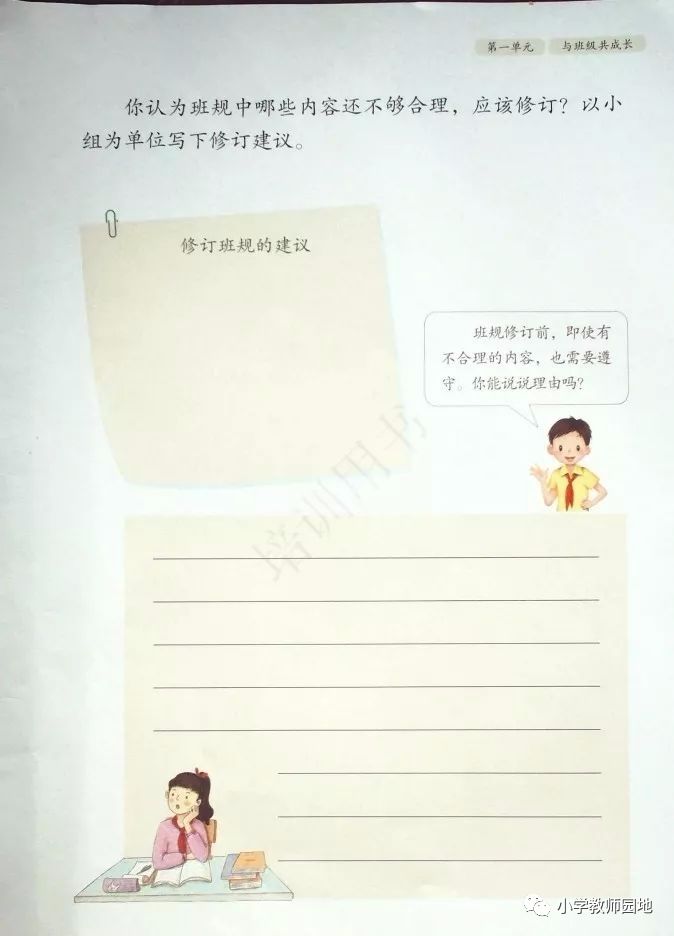 第一单元 与班级共成长
你认为班规中哪些内容还不够合理，应该修订？以小
组为单位写下修订建议。
修订班规的建议
班规修订前，即使有
不合理的内容，也需要遵
守。你能说说理由吗？
培训用书
小学教师园地